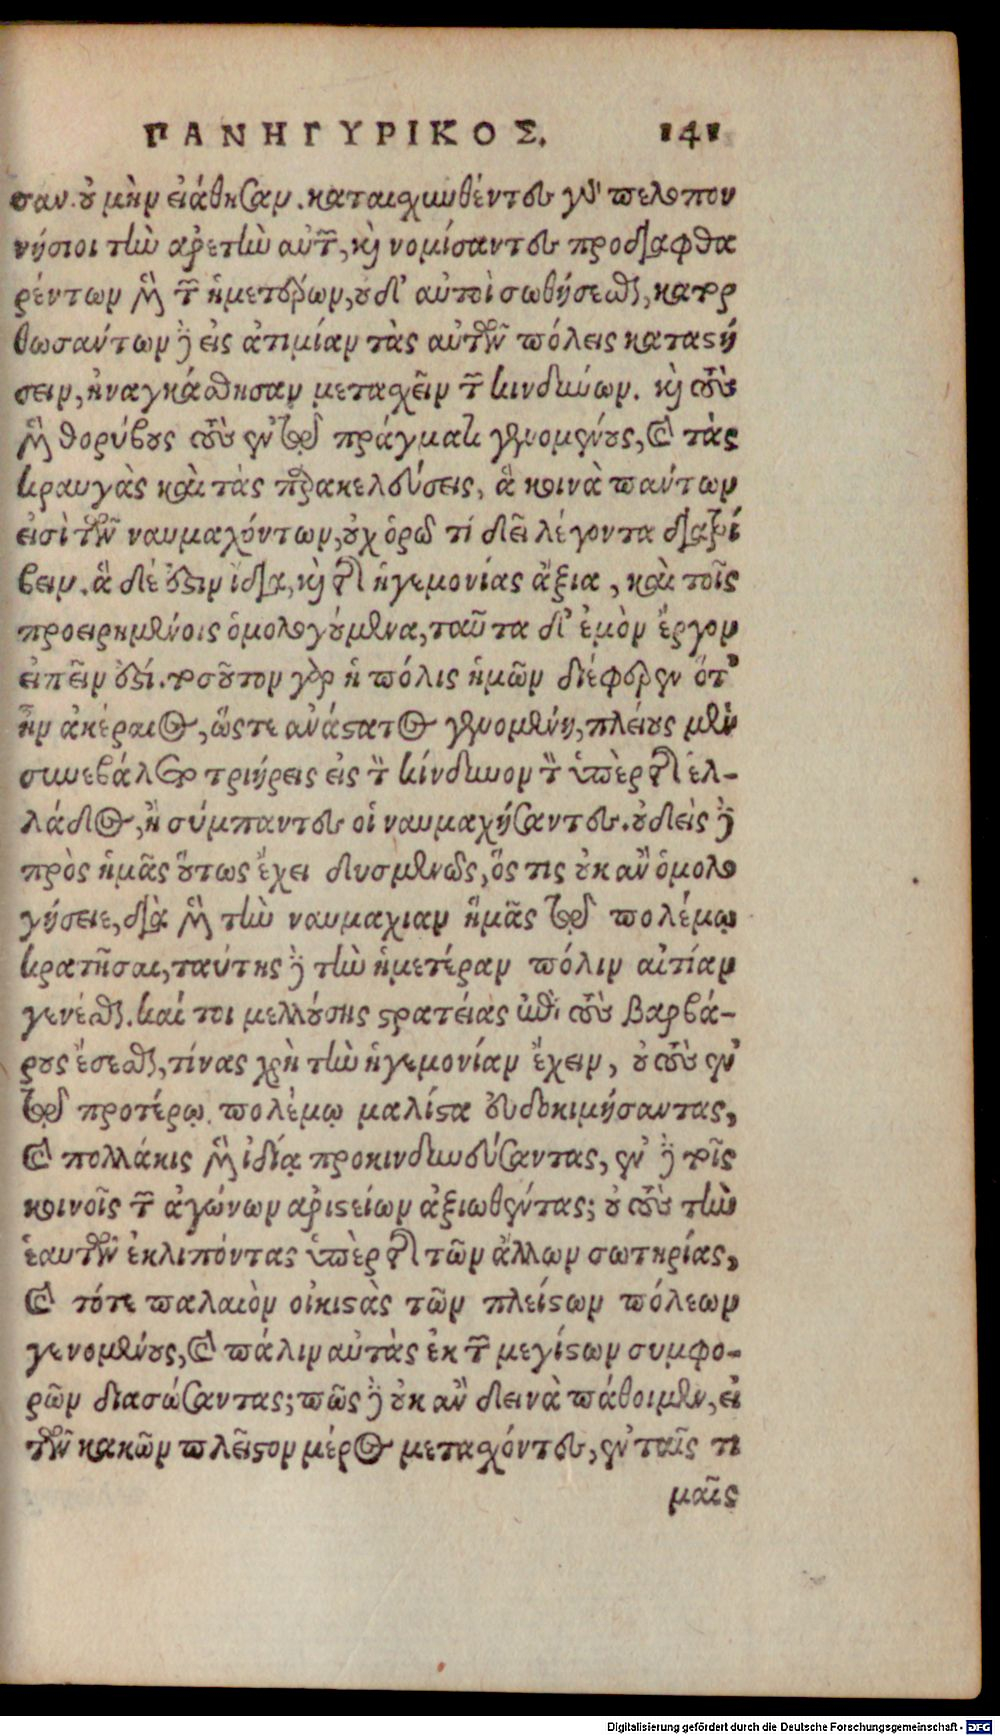 ΠΑΝΗΓΥΡΙΚΟΣ. 141
σαν. οὐ μὴν εἰάθησαν. καταισχυνθέντες γὰρ πελοπον
νήσιοι τὴν ἀρετὴν αὐτῶν, καὶ νομίσαντες προδιαφθα
ρέντων μὲν τῶν ἡμετέρων, οὐδ' αὐτοὶ σωθήσεσθαι, κατορ
θωσάντων δὲ εἰς ἀτιμίαν τὰς αὑτῶν πόλεις καταστή
σειν, ἠναγκάσθησαν μετασχεῖν τῶν κινδύνων. καὶ τοὺς
μὲν θορύβους τοὺς ἐν τῷ πράγματι γενομένους, καὶ τὰς
κραυγὰς καὶ τὰς παρακελεύσεις, ἃ κοινὰ πάντων
εἰσὶ τῶν ναυμαχόντων, οὐχ ὁρῶ τί δεῖ λέγοντα διατρί
βειν. ἃ δέ ἐστιν ἴδια, καὶ τῆς ἡγεμονίας ἄξια, καὶ τοῖς
προειρημένοις ὁμολογούμενα, ταῦτα δ' ἐμὸν ἔργον
εἰπεῖν ἐστί. τοσοῦτον γὰρ ἡ πόλις ἡμῶν διέφερεν ὅτ'
ἦν ἀκέραιος, ὥστε ἀνάστατος γενομένη, πλείους μὲν
συνεβάλετο τριήρεις εἰς τὸν κίνδυνον τὸν ὑπὲρ τῆς ἑλ-
λάδος, ἢ σύμπαντες οἱ ναυμαχήσαντες. οὐδεὶς δὲ
πρὸς ἡμᾶς οὕτως ἔχει δυσμενῶς, ὅς τις οὐκ ἂν ὁμολο
γήσειε, διὰ μὲν τὴν ναυμαχιαν ἡμᾶς τῷ πολέμῳ
κρατῆσαι, ταύτης δὲ τὴν ἡμετέραν πόλιν αἰτίαν
γενέσθαι. καί τοι μελλούσης στρατείας ἐπὶ τοὺς βαρβά-
ρους ἔσεσθαι, τίνας χρὴ τὴν ἡγεμονίαν ἔχειν, οὐ τοὺς ἐν
τῷ προτέρῳ πολέμῳ μαλίστα εὐδοκιμήσαντας,
καὶ πολλάκις μὲν ἰδίᾳ προκινδυνεύσαντας, ἐν δὲ τοῖς
κοινοῖς τῶν ἀγώνων ἀριστείων ἀξιωθέντας; οὐ τοὺς τὴν
ἑαυτῶν ἐκλιπόντας ὑπὲρ τῆς τῶν ἄλλων σωτηρίας,
καὶ τότε παλαιὸν οἰκιστὰς τῶν πλείστων πόλεων
γενομένους, καὶ πάλιν αὐτὰς ἐκ τῶν μεγίστων συμφο-
ρῶν διασώσαντας; πῶς δὲ οὐκ ἂν δεινὰ πάθοιμεν, εἰ
τῶν κακῶν πλεῖστον μέρος μετασχόντες, ἐν ταῖς τι
μαῖς
Digitalisierung gefördert durch die Deutsche Forschungsgemeinschaft - DFG